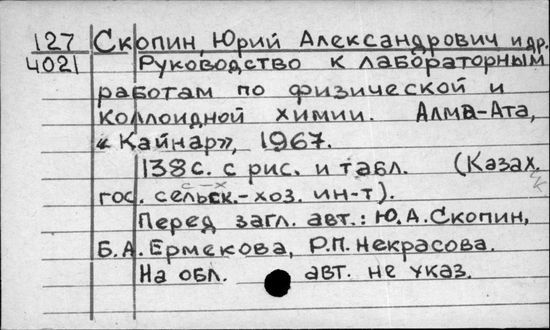 127 Скопин, Юрий Александрович и др.
4021 Руководство к лабораторным
работам по физической и
коллоидной химии. Алма-Ата,
«Кайнар», 1967.
138 с. с рис. и табл. (Казах.
гос. сельск.-хоз. ин-т).
Перед загл. авт.: Ю.А.Скопин,
Б.А.Ермекова, Р.П.Некрасова.
На обл. авт. не указ.